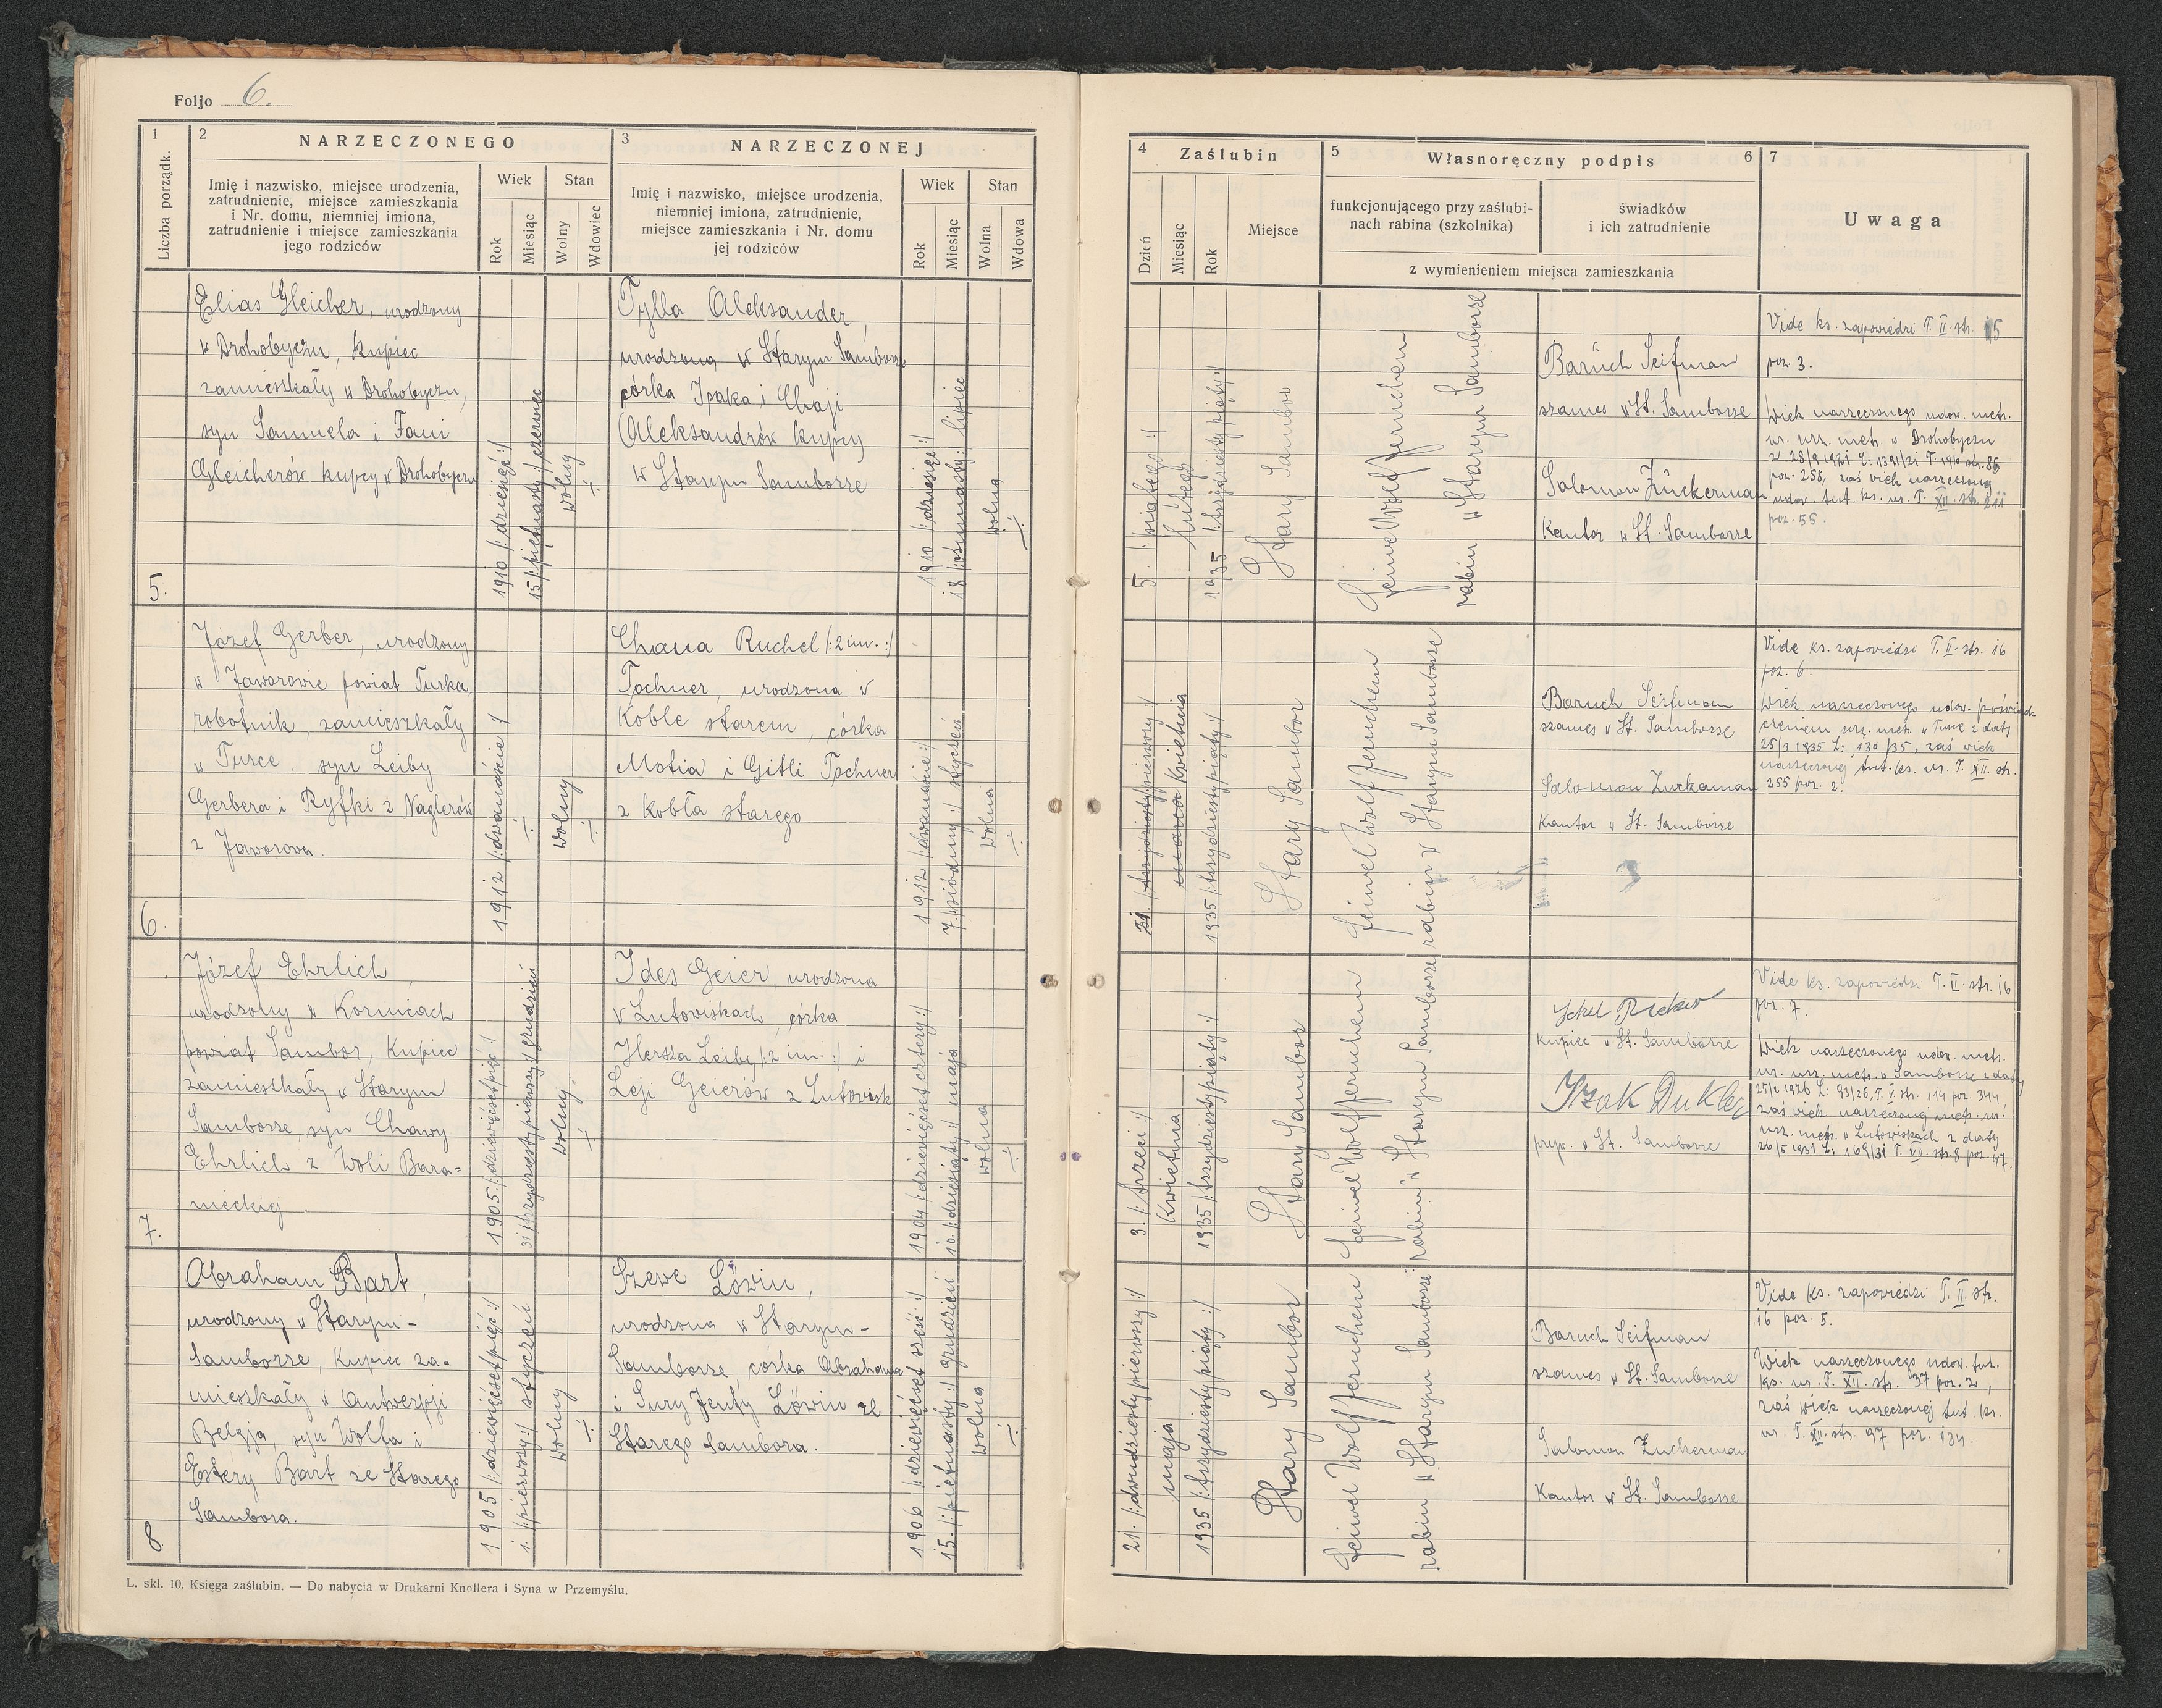 Foljo 6.
1
Liczba porządk.
2
NARZECZONEGO
Imię i nazwisko, miejsce urodzenia,
zatrudnienie, miejsce zamieszkania
i Nr. domu, niemniej imiona,
zatrudnienie i miejsce zamieszkania
jego rodziców
Wiek
Rok
Miesiąc
Stan
Wolny
Wdowiec
3
NARZECZONEJ
Imię i nazwisko, miejsce urodzenia,
niemniej imiona, zatrudnienie,
miejsce zamieszkania i Nr. domu
jej rodziców
Wiek
Rok
Miesiąc
Stan
Wolna
Wdowa
4
Zaślubin
Dzień
Miesiąc
Rok
Miejsce
5
Własnoręczny podpis
6
funkcjonującego przy zaślubi-
nach rabina (szkolnika)
świadków
i ich zatrudnienie
z wymienieniem miejsca zamieszkania
7
Uwaga
5.
Elias Gleicher, urodzony
w Drohobyczu, kupiec
zamieszkały w Drohobyczu,
syn Samuela i Fani
Gleicherów kupcy w Drohobyczu
1910 /:dziesięć:/
15 /:piętnasty:/ czerwiec
wolny
Tylla Aleksander,
urodzona w Starym Samborze
córka Izaka i Chaji
Aleksandrów kupcy
w Starym Samborze
1910 /:dziesięć:/
18 /:osiemnasty:/ lipiec
wolna
5. /:piątego:/
lutego
1935 /:trzydziesty piąty:/
Stary Sambor
Feiwel Wolf Fernchen
rabin w Starym Samborze
Baruch Seifman
szames w St. Samborze
Salomon Zuckerman
Kantor w St. Samborze
Vide ks. zapowiedzi T. II. str. 15
poz. 3.
Wiek narzeczonego udow. metr.
ur. urz. metr. w Drohobyczu
poz. 258, zaś wiek narzeczonej
udow. tut. ks. ur. T. XII. str. 211
poz. 55.
6.
Józef Gerber, urodzony
w Jaworowie powiat Turka
robotnik, zamieszkały
w Turce syn Leiby
Gerbera i Ryfki z Naglerów
z Jaworowa.
1912 /:dwanaście:/
wolny
Chana Ruchel /:2 im.:/
Tochner, urodzona w
Koble starem, córka
Motia i Gitli Tochner
z Kobła starego
1912 /:dwanaście:/
7. /:siódmy:/ styczeń
wolna
31. /:trzydziesty pierwszy:/
marca kwietnia
1935 /:trzydziesty piąty:/
Stary Sambor
Feiwel Wolf Fernchen
rabin w Starym Samborze
Baruch Seifman
szames w St. Samborze
Salomon Zuckerman
Kantor w St. Samborze
Vide ks. zapowiedzi T. II. str. 16
poz. 6.
Wiek narzeczonego udow. poświad-
czeniem urz. metr. w Turce z daty
25/3 1935 L: 130/35, zaś wiek
narzeczonej tut. ks. ur. T. XII. str.
255 poz. 2.
7.
Józef Ehrlich,
urodzony w Kornicach
powiat Sambor, kupiec
zamieszkały w Starym
Samborze, syn Chawy
Ehrlich z Woli Bara=
nieckiej.
1905 /:dziewięćset pięć:/
31 /:trzydziesty pierwszy:/ grudzień
wolny
Ides Geier, urodzona
w Lutowiskach, córka
Hersza Leiby /:2 im.:/ i
Leji Geierów z Lutowisk
1904 /:dziewięćset cztery:/
10. /:dziesiąty:/ maja
wolna
3. /:trzeci:/
Kwietnia
1935 /:trzydziesty piąty:/
Stary Sambor
Feiwel Wolf Fernchen
rabin w Starym Samborze
kupiec w St. Samborze
Izak Dukler
pryw. w St. Samborze
Vide ks. zapowiedzi T. II. str. 16
poz. 7.
Wiek narzeczonego udow. metr.
ur. urz. metr. w Samborze z daty
25/2 1926 L: 93/26, T. V. str. 114 poz. 344,
zaś wiek narzeczonej metr. ur.
urz. metr. w Lutowiskach z daty
26/5 1931 L: 169/31 T. VII. str. 8 poz. 47.
8
Abraham Bart,
urodzony w Starym-
Samborze, kupiec za-
mieszkały w Antwerpji
Belgja, syn Wolfa i
Estery Bart ze Starego
Sambora.
1905 /:dziewięćset pięć:/
1. /:pierwszy:/ styczeń
wolny
Szewe Löwin,
urodzona w Starym-
Samborze, córka Abrahama
i Sury Jenty Löwin ze
Starego Sambora.
1906 /:dziewięćset sześć:/
15. /:piętnasty:/ grudzień
wolna
21. /:dwudziesty pierwszy:/
maja
1935 /:trzydziesty piąty:/
Stary Sambor
Feiwel Wolf Fernchen
rabin w Starym Samborze
Baruch Seifman
szames w St. Samborze
Salomon Zuckerman
Kantor w St. Samborze
Vide ks. zapowiedzi T. II. str.
16 poz. 5.
Wiek narzeczonego udow. tut.
ks. ur. T. XII. str. 37 poz. 2,
zaś wiek narzeczonej tut. ks.
ur. T. XII. str. 97 poz. 134.
L. skl. 10. Księga zaślubin. — Do nabycia w Drukarni Knollera i Syna w Przemyślu.